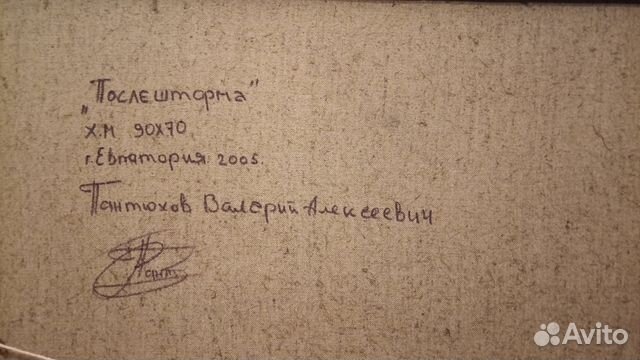 „Послешторма"
Х.М 90х70
г. Евпатория 2005.
Пантюхов Валерий Алексеевич
Пант
Avito